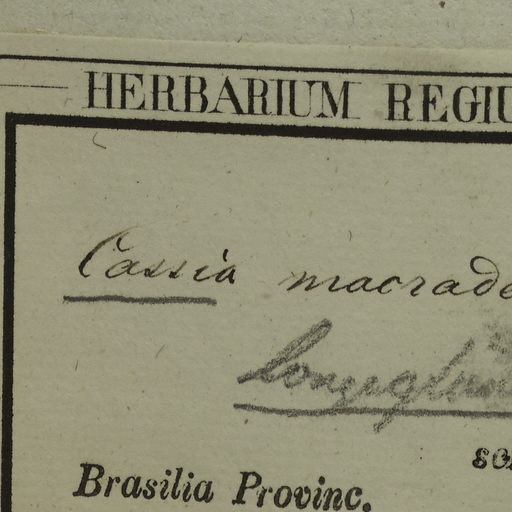 HERBARIUM REGIU
Cassia macrade
longiglan
Brasilia Provinc.